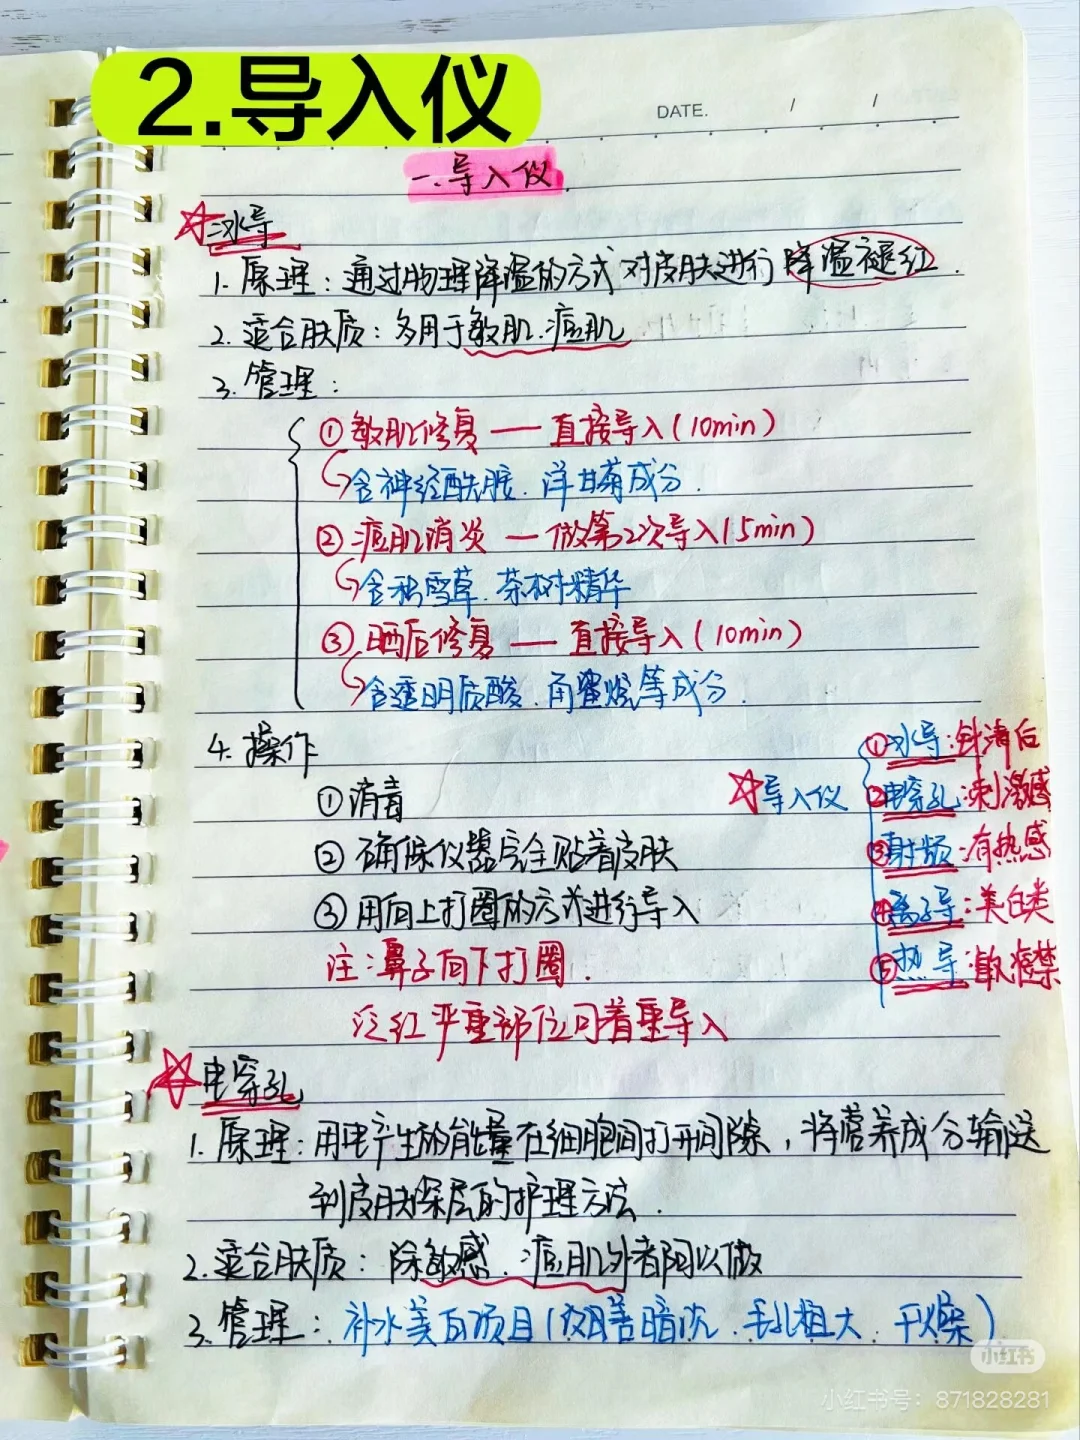 2.导入仪
DATE. / /
一.导入仪.
冰导
1. 原理：通过物理降温的方式对皮肤进行降温褪红.
2. 适合肤质：多用于敏肌.痘肌
3. 管理：
① 敏肌修复 — 直接导入(10min)
含神经酰胺.洋甘菊成分.
② 痘肌消炎 — 做第2次导入(5min)
含积雪草.茶树精华
③ 晒后修复 — 直接导入(10min)
含透明质酸.角鲨烷等成分.
4. 操作
①消毒
② 确保仪器完全贴着皮肤
③ 用向上打圈的方式进行导入
注：鼻子向下打圈.
泛红严重部位可着重导入
导入仪
①冰导：针清后
②电穿孔：刺激感
③射频：有热感
④离子导：美白类
⑤热导：敏痘禁
电穿孔
1. 原理：用电产生的能量在细胞间打开间隙，将营养成分输送
到皮肤深层的护理方法.
2. 适合肤质：除敏感.痘肌外者阿以做
3. 管理：补水美白项目(改善暗沉.毛孔粗大.干燥)
小红书
小红书号：871828281